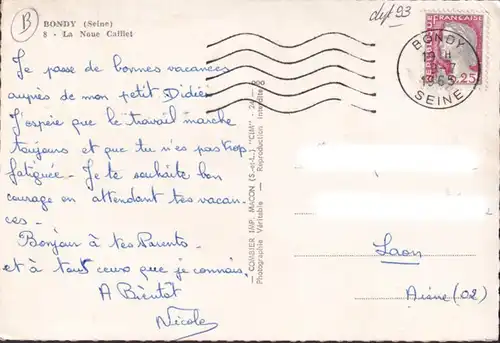 B
BONDY (Seine)
8 - La Noue Caillet
dept 93
Je passe de bonnes vacances
auprès de mon petit Didier
J'espère que le travail marche
toujours et que tu n'es pas trop
fatiguée - Je te souhaite bon
courage en attendant tes vacan-
ces -
Bonjour à tes Parents -
et à tous ceux que je connais.
A Bientôt
Nicole
COMBIER IMP. MACON (S.-et-L.) "CIM"
Photographie Véritable - Reproduction interdite
FRANÇAISE
0.25
BONDY
SEINE
Laon
Aisne (02)